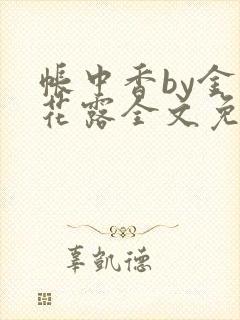 帐中香by金
花露全文免
辜凯德